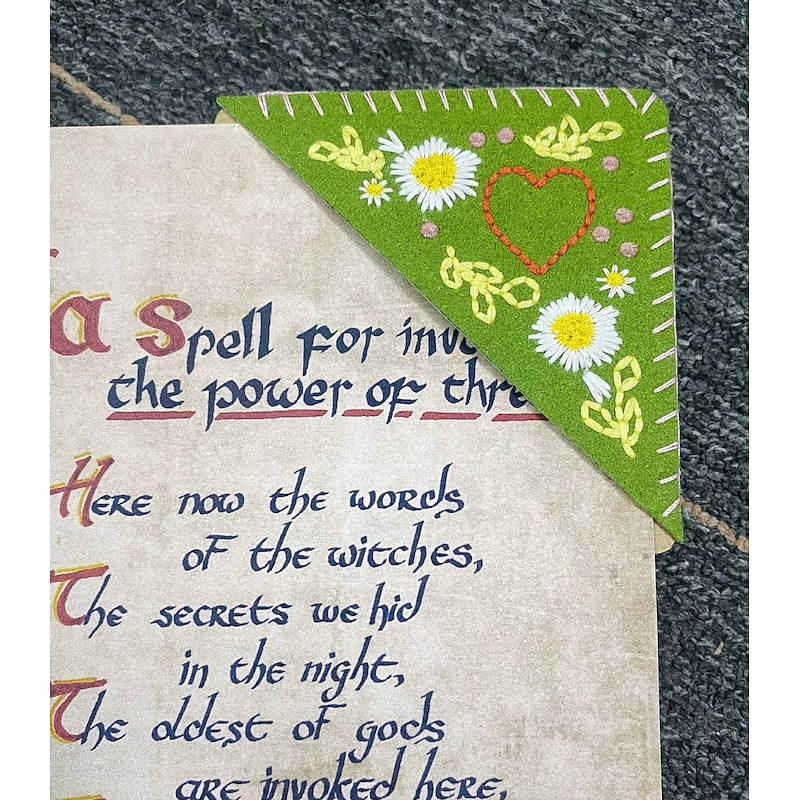 a Spell for
the power of
Here now the words
of the witches,
The secrets we hid
in the night,
The oldest of gods
are invoked here,